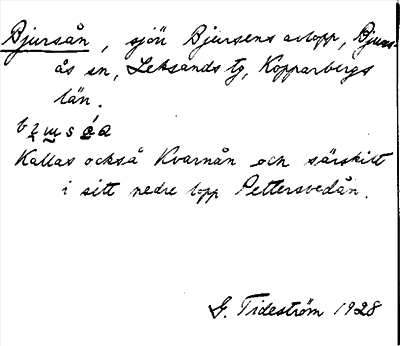 Bjursån, sjön Bjursens avlopp, Bjurs-
ås sn, Leksands tg, Kopparbergs
län.
Kallas också Kvarnån och särskilt
i sitt nedre lopp Pettersvedån.
G. Tideström 1928